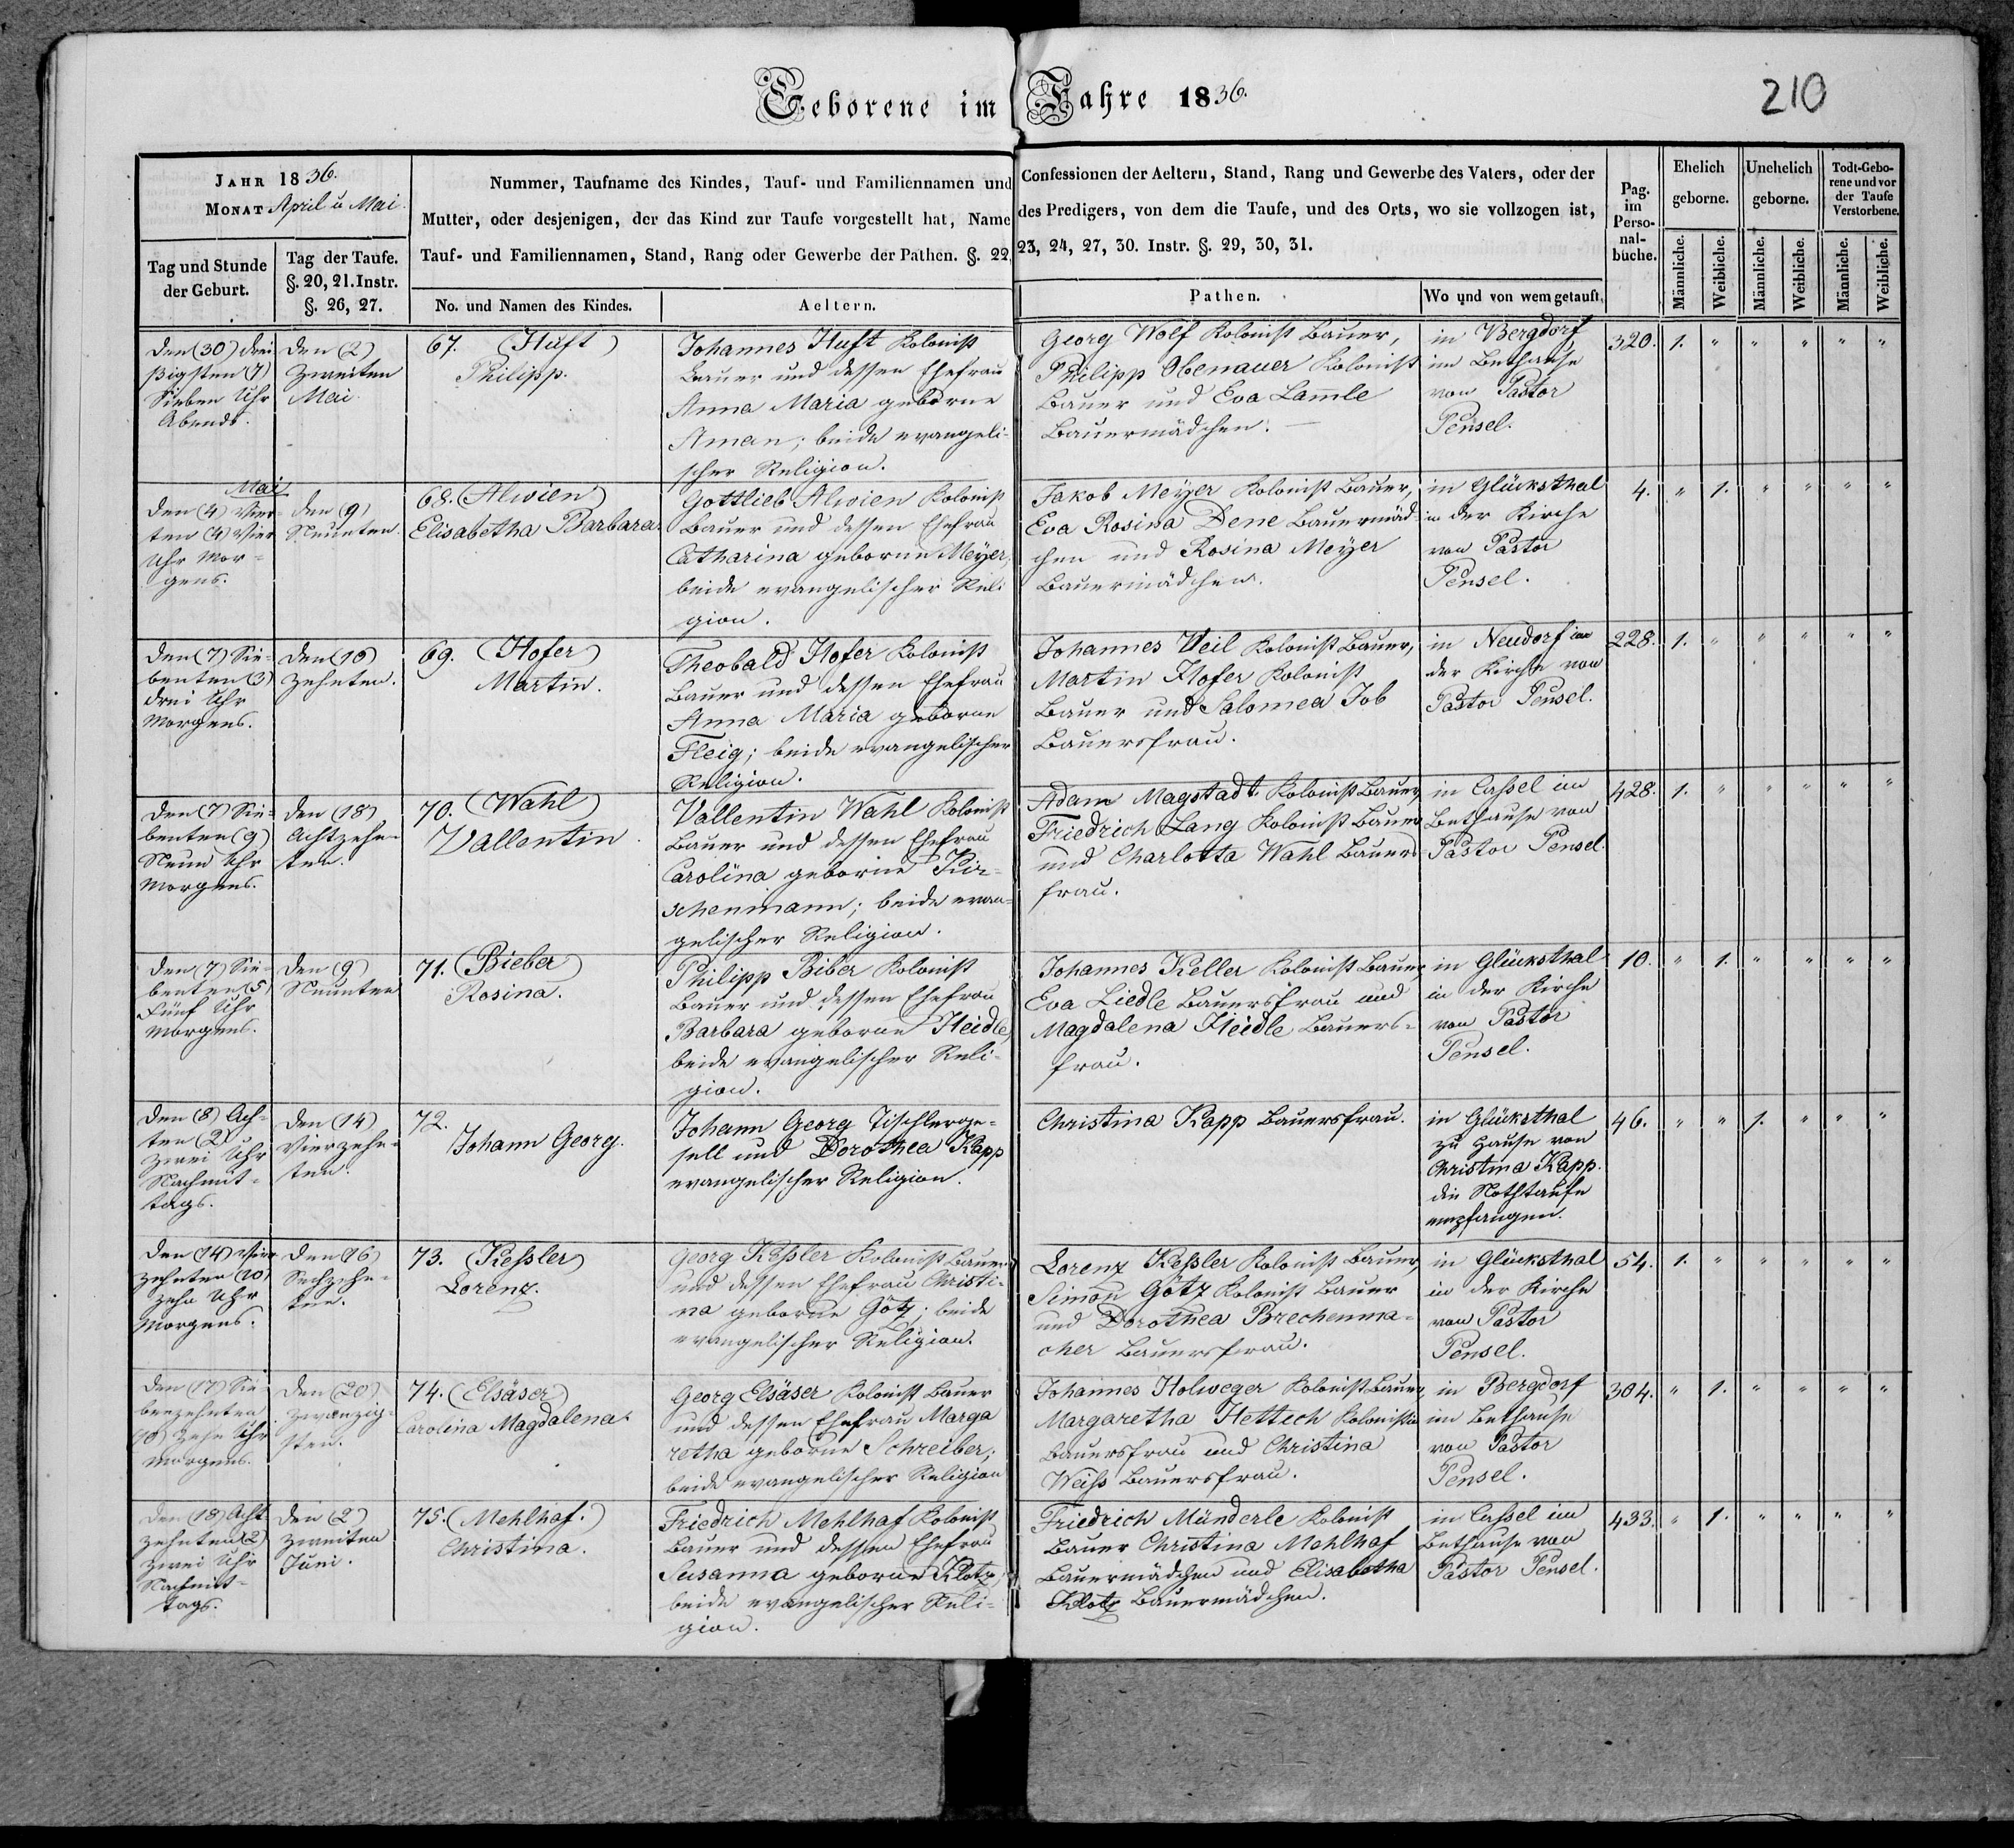 Geborene im Jahre 1836.
210
JAHR 1836.
MONAT April u Mai.
Tag und Stunde
der Geburt.
Tag der Taufe.
§. 20, 21. Instr.
§. 26, 27.
Nummer, Taufname des Kindes, Tauf- und Familiennamen und
Mutter, oder desjenigen, der das Kind zur Taufe vorgestellt hat, Name
Tauf- und Familiennamen, Stand, Rang oder Gewerbe der Pathen. §. 22,
No. und Namen des Kindes.
Aeltern.
Confessionen der Aeltern, Stand, Rang und Gewerbe des Vaters, oder der
des Predigers, von dem die Taufe, und des Orts, wo sie vollzogen ist,
23, 24, 27, 30. Instr. §. 29, 30, 31.
Pathen.
Wo und von wem getauft.
Pag.
im
Perso-
nal-
buche.
Ehelich
geborne.
Unehelich
geborne.
Todt-Gebo-
rene und vor
der Taufe
Verstorbene.
Männliche.
Weibliche.
Männliche.
Weibliche.
Männliche.
Weibliche.
Den (30) drei
ßigsten (7)
Sieben Uhr
Abends.
Den (2)
Zweiten
Mai.
67. (Huft)
Philipp.
Johannes Huft Kolonist
Bauer und dessen Ehefrau
Anna Maria geborne
Aman; beide evangeli-
scher Religion.
Georg Wolf Kolonist Bauer,
Philipp Obenauer Kolonist
Bauer und Eva Lamle
Bauermädchen. —
in Bergdorf
im Bethause
von Pastor
Pensel.
320. 1. " " " " "
Mai
Den (4) Vier-
ten (4) Vier
Uhr Mor-
gens.
Den (9)
Neunten.
68. (Alwien)
Elisabetha Barbara
Gottlieb Alwien Kolonist
Bauer und dessen Ehefrau
Catharina geborne Meyer,
beide evangelischer Reli-
gion.
Jakob Meyer Kolonist Bauer,
Eva Rosina Dene Bauermäd-
chen und Rosina Meyer
Bauermädchen.
in Glücksthal
in der Kirche
von Pastor
Pensel.
4. " 1. " " " "
Den (7) Sie-
benten (3)
drei Uhr
Morgens.
Den (10)
Zehnten.
69. (Hofer)
Martin.
Theobald Hofer Kolonist
Bauer und dessen Ehefrau
Anna Maria geborne
Fleig; beide evangelischer
Religion.
Johannes Weil Kolonist Bauer,
Martin Hofer Kolonist
Bauer und Salomea Job
Bauersfrau.
in Neudorf in
der Kirche von
Pastor Pensel.
228. 1. " " " " "
Den (7) Sie-
benten (9)
Neun Uhr
Morgens.
Den (18)
Achtzehn-
ten.
70. (Wahl)
Vallentin
Vallentin Wahl Kolonist
Bauer und dessen Ehefrau
Carolina geborne Kir-
schenmann; beide evan-
gelischer Religion.
Adam Magstadt Kolonist Bauer,
Friedrich Lang Kolonist Bauer
und Charlotta Wahl Bauers-
frau.
in Cassel im
Bethause von
Pastor Pensel.
428. 1. " " " " "
Den (7) Sie-
benten (5)
Fünf Uhr
Morgens.
Den (9)
Neunten
71. (Bieber)
Rosina.
Philipp Biber Kolonist
Bauer und dessen Ehefrau
Barbara geborne Heidle,
beide evangelischer Reli-
gion.
Johannes Keller Kolonist Bauer,
Eva Liedle Bauersfrau und
Magdalena Heidle Bauers-
frau.
in Glücksthal
in der Kirche
von Pastor
Pensel.
10. " 1. " " " "
Den (8) Ach-
ten (2)
Zwei Uhr
Nachmit-
tags.
Den (14)
Vierzehn-
ten.
72.
Johann Georg.
Johann Georg Tischlerge-
sell und Dorothea Kapp
evangelischer Religion.
Christina Kapp Bauersfrau.
in Glücksthal
zu Hause von
Christina Kapp.
die Nothtaufe
empfangen.
46. " " 1. " " "
Den (14) Vier
zehnten (10)
zehn Uhr
Morgens.
Den (16)
Sechzehn-
ten.
73. (Kessler)
Lorenz.
Georg Keßler Kolonist Bauer
und dessen Ehefrau Christi-
na geborne Götz; beide
evangelischer Religion.
Lorenz Keßler Kolonist Bauer,
Simon Götz Kolonist Bauer
und Dorothea Brechenma-
cher Bauersfrau.
in Glücksthal
in der Kirche
von Pastor
Pensel.
54. 1. " " " " "
Den (17) Sie
benzehnten
(10) Zehn Uhr
Morgens.
Den (20)
Zwanzig-
sten.
74. (Elsäser)
Carolina Magdalena.
Georg Elsäser Kolonist Bauer
und dessen Ehefrau Marga
retha geborne Schreiber;
beide evangelischer Religion
Johannes Holweger Kolonist Bauer,
Margaretha Hettich Kolonistin
Bauersfrau und Christina
Weiß Bauersfrau.
in Bergdorf
im Bethause
von Pastor
Pensel.
304. " 1. " " " "
Den (18) Acht
zehnten (2)
Zwei Uhr
Nachmit-
tags.
Den (2)
Zweiten
Juni.
75. (Mehlhaf.)
Christina.
Friedrich Mehlhaf Kolonist
Bauer und dessen Ehefrau
Susanna geborne Klotz,
beide evangelischer Reli-
gion.
Friedrich Münderle Kolonist
Bauer Christina Mehlhaf
Bauermädchen und Elisabetha
Klotz Bauermädchen.
in Cassel im
Bethause von
Pastor Pensel.
433. " 1. " " " "